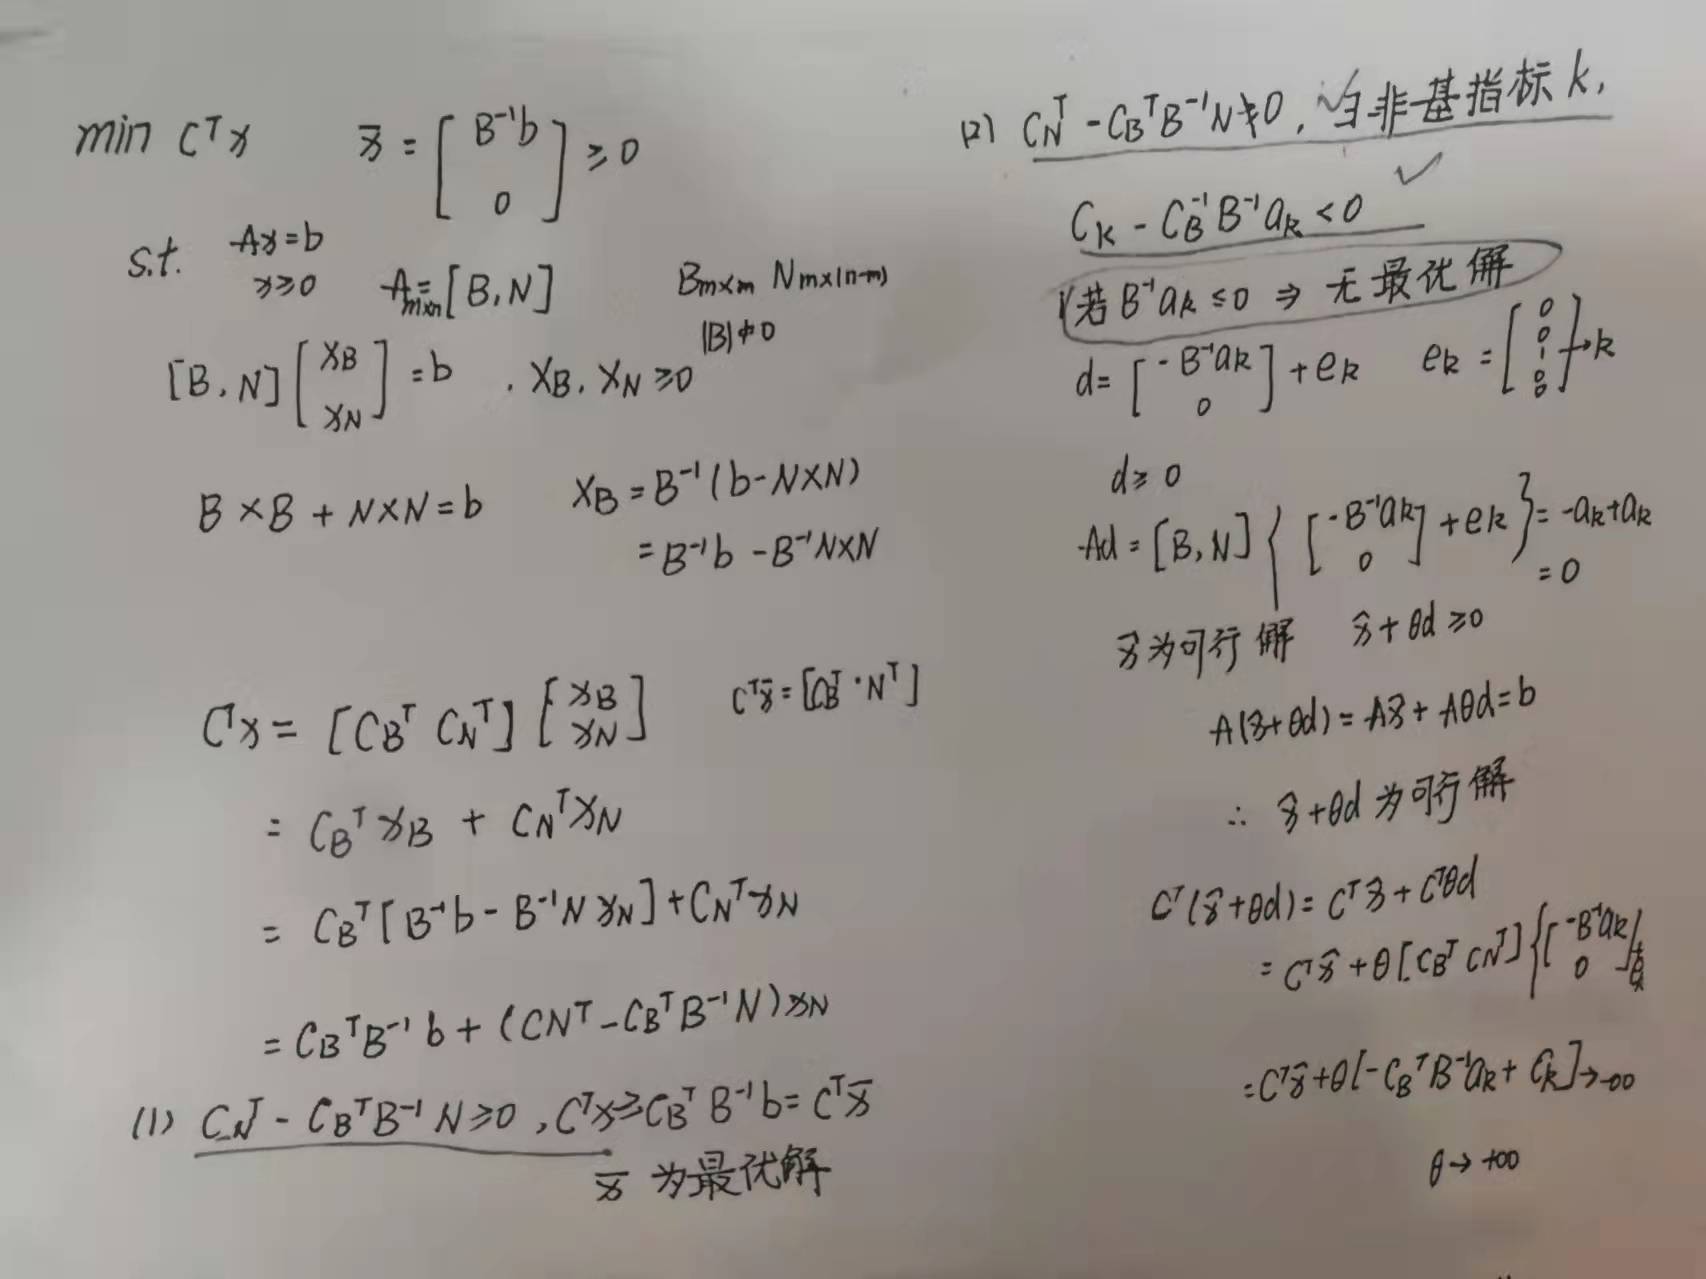 min Cᵀx   x̄ = [ B⁻¹b ; 0 ] ≥ 0
s.t.  Ax=b
x≥0   A_{m×n}=[B,N]   B_{m×m} N_{m×(n-m)}
|B|≠0
[B,N] [ x_B ; x_N ] = b , x_B, x_N ≥0
B x_B + N x_N = b   x_B = B⁻¹(b-N x_N)
= B⁻¹b - B⁻¹N x_N
Cᵀx = [C_Bᵀ C_Nᵀ] [ x_B ; x_N ]   Cᵀx̄ = [C_Bᵀ · Nᵀ]
= C_Bᵀ x_B + C_Nᵀ x_N
= C_Bᵀ [B⁻¹b - B⁻¹N x_N] + C_Nᵀ x_N
= C_Bᵀ B⁻¹ b + (C_Nᵀ - C_Bᵀ B⁻¹ N) x_N
(1) C_Nᵀ - C_Bᵀ B⁻¹ N ≥ 0 , Cᵀx ≥ C_Bᵀ B⁻¹ b = Cᵀx̄
x̄ 为最优解
(2) C_Nᵀ - C_Bᵀ B⁻¹ N ≱ 0 , ∃ 非基指标 k,
C_k - C_B⁻¹ B⁻¹ a_k < 0
1' 若 B⁻¹ a_k ≤ 0 ⇒ 无最优解
d = [ -B⁻¹a_k ; 0 ] + e_k   e_k = [ 0 ; 0 ; 1 ; 0 ; 0 ] → k
d ≥ 0
Ad = [B,N] { [ -B⁻¹a_k ; 0 ] + e_k } = -a_k + a_k
= 0
x̂ 为可行解   x̂ + θd ≥ 0
A(x̂+θd) = Ax̂ + Aθd = b
∴ x̂+θd 为可行解
Cᵀ(x̂+θd) = Cᵀx̂ + Cᵀθd
= Cᵀx̂ + θ [C_Bᵀ C_Nᵀ] { [ -B⁻¹a_k ; 0 ] +
= Cᵀx̂ + θ [-C_Bᵀ B⁻¹ a_k + C_k] → -∞
θ → +∞